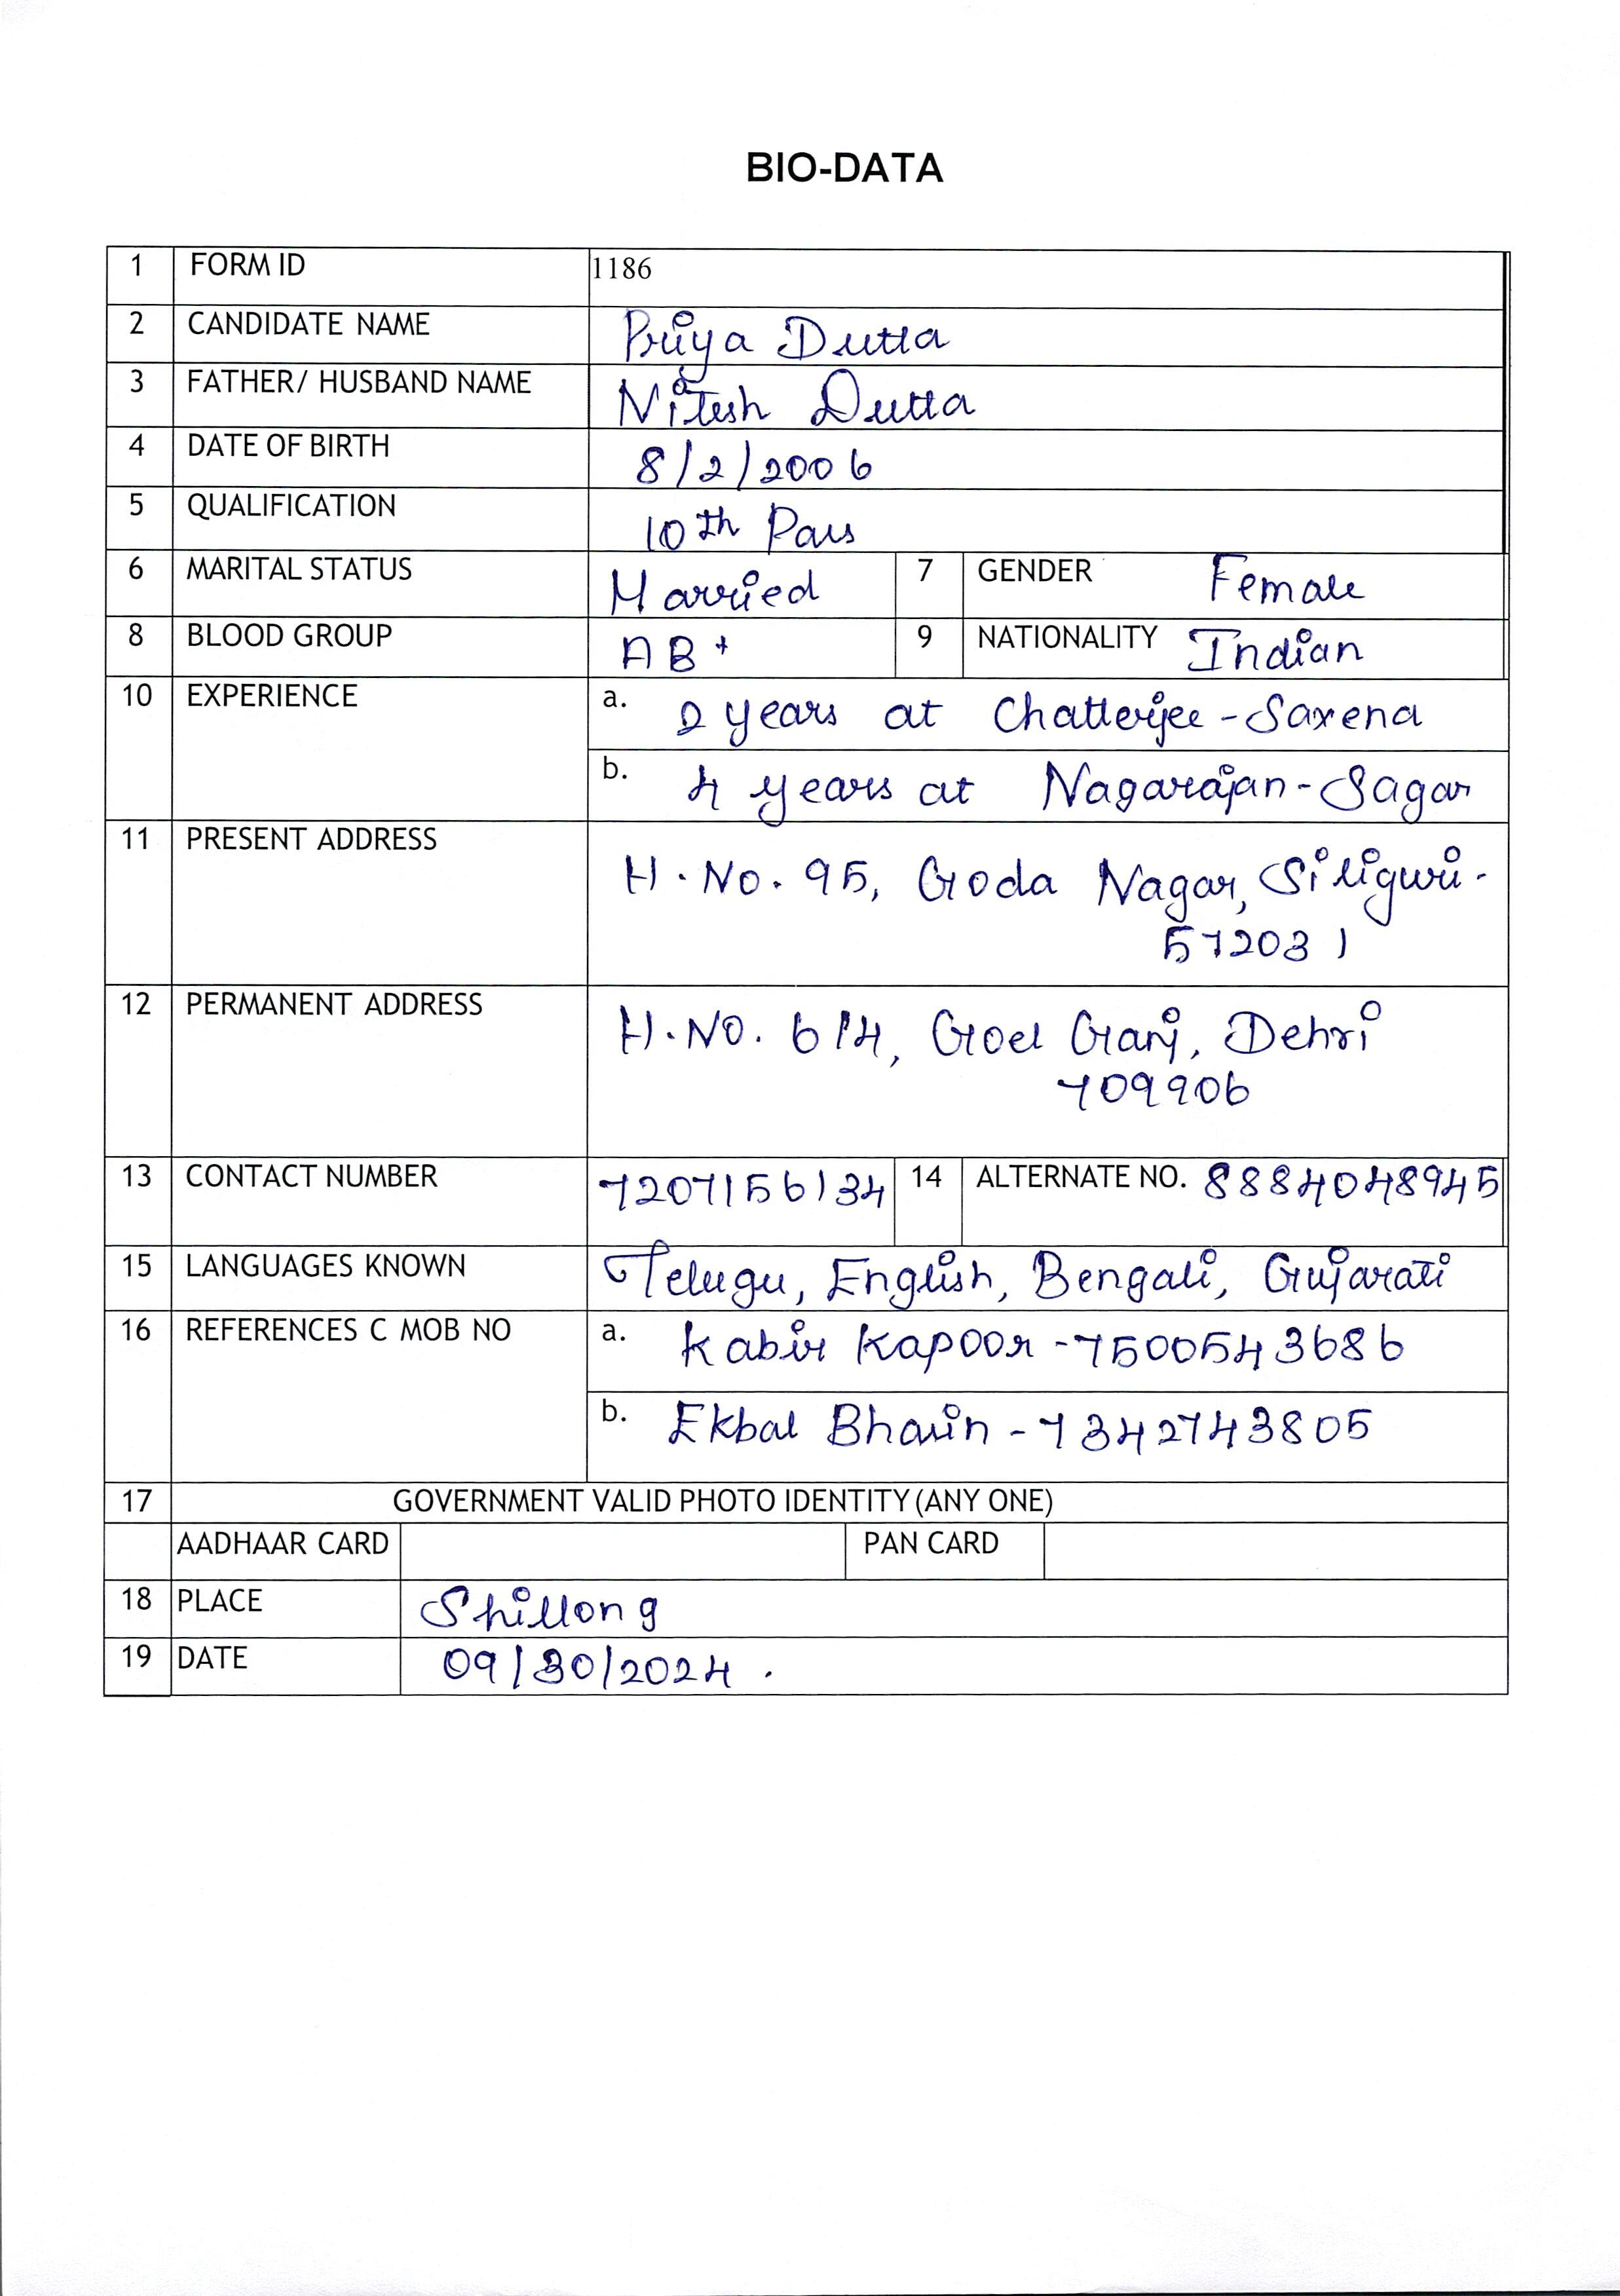 BIO-DATA
1 FORM ID 1186
2 CANDIDATE NAME Priya Dutta
3 FATHER/ HUSBAND NAME Nitesh Dutta
4 DATE OF BIRTH 8/2/2006
5 QUALIFICATION 10th Pass
6 MARITAL STATUS Married 7 GENDER Female
8 BLOOD GROUP AB+ 9 NATIONALITY Indian
10 EXPERIENCE a. 2 years at Chatterjee-Saxena
b. 4 years at Nagarajan-Sagar
11 PRESENT ADDRESS H.No. 95, Goda Nagar, Siliguri-
572031
12 PERMANENT ADDRESS H.NO. 614, Goel Ganj, Dehri
709906
13 CONTACT NUMBER 7207156134 14 ALTERNATE NO. 8884048945
15 LANGUAGES KNOWN Telugu, English, Bengali, Gujarati
16 REFERENCES C MOB NO a. Kabir Kapoor -7500543686
b. Ekbal Bhasin -7342743805
17 GOVERNMENT VALID PHOTO IDENTITY (ANY ONE)
AADHAAR CARD PAN CARD
18 PLACE Shillong
19 DATE 09/30/2024.